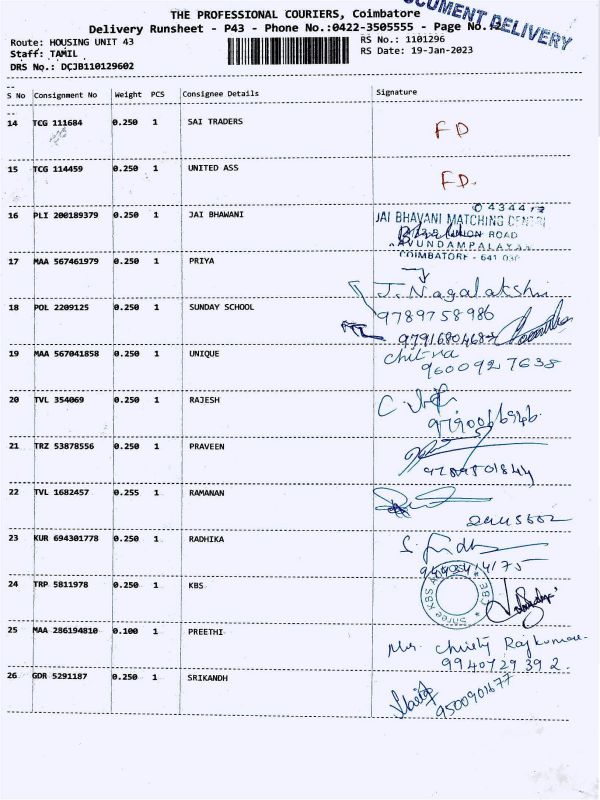 THE PROFESSIONAL COURIERS, Coimbatore
DOCUMENT DELIVERY
Delivery Runsheet - P43 - Phone No.:0422-3505555 - Page No.
Route: HOUSING UNIT 43
RS No.: 1101296
Staff: TAMIL
RS Date: 19-Jan-2023
DRS No.: DCJB110129602
S No Consignment No Weight PCS Consignee Details Signature
14 TCG 111684 0.250 1 SAI TRADERS FD
15 TCG 114459 0.250 1 UNITED ASS FD.
16 PLI 200189379 0.250 1 JAI BHAWANI
JAI BHAVANI MATCHING
UNION ROAD
COIMBATORE - 641
17 MAA 567461979 0.250 1 PRIYA
J. Nagalakshmi
9789758986
18 POL 2209125 0.250 1 SUNDAY SCHOOL
19 MAA 567041858 0.250 1 UNIQUE
chitra
9600927638
20 TVL 354069 0.250 1 RAJESH
21 TRZ 53878556 0.250 1 PRAVEEN
22 TVL 1682457 0.255 1 RAMANAN
23 KUR 694301778 0.250 1 RADHIKA
24 TRP 5811978 0.250 1 KBS
Shree KBS
CBE
25 MAA 286194810 0.100 1 PREETHI
Mr. Christy Rajkumar
9940729392.
26 GDR 5291187 0.250 1 SRIKANDH
9500901677